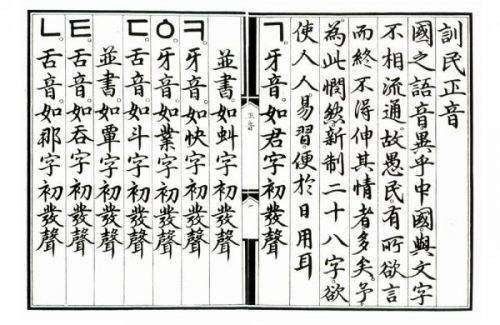 訓民正音
國之語音異乎中國與文字
不相流通。故愚民有所欲言
而終不得伸其情者多矣。予
為此憫然。新制二十八字欲
使人人易習。便於日用耳
ㄱ。牙音。如君字初發聲
並書。如蚪字初發聲
ㅋ。牙音。如快字初發聲
ㆁ。牙音。如業字初發聲
ㄷ。舌音。如斗字初發聲
並書。如覃字初發聲
ㅌ。舌音。如呑字初發聲
ㄴ。舌音。如那字初發聲